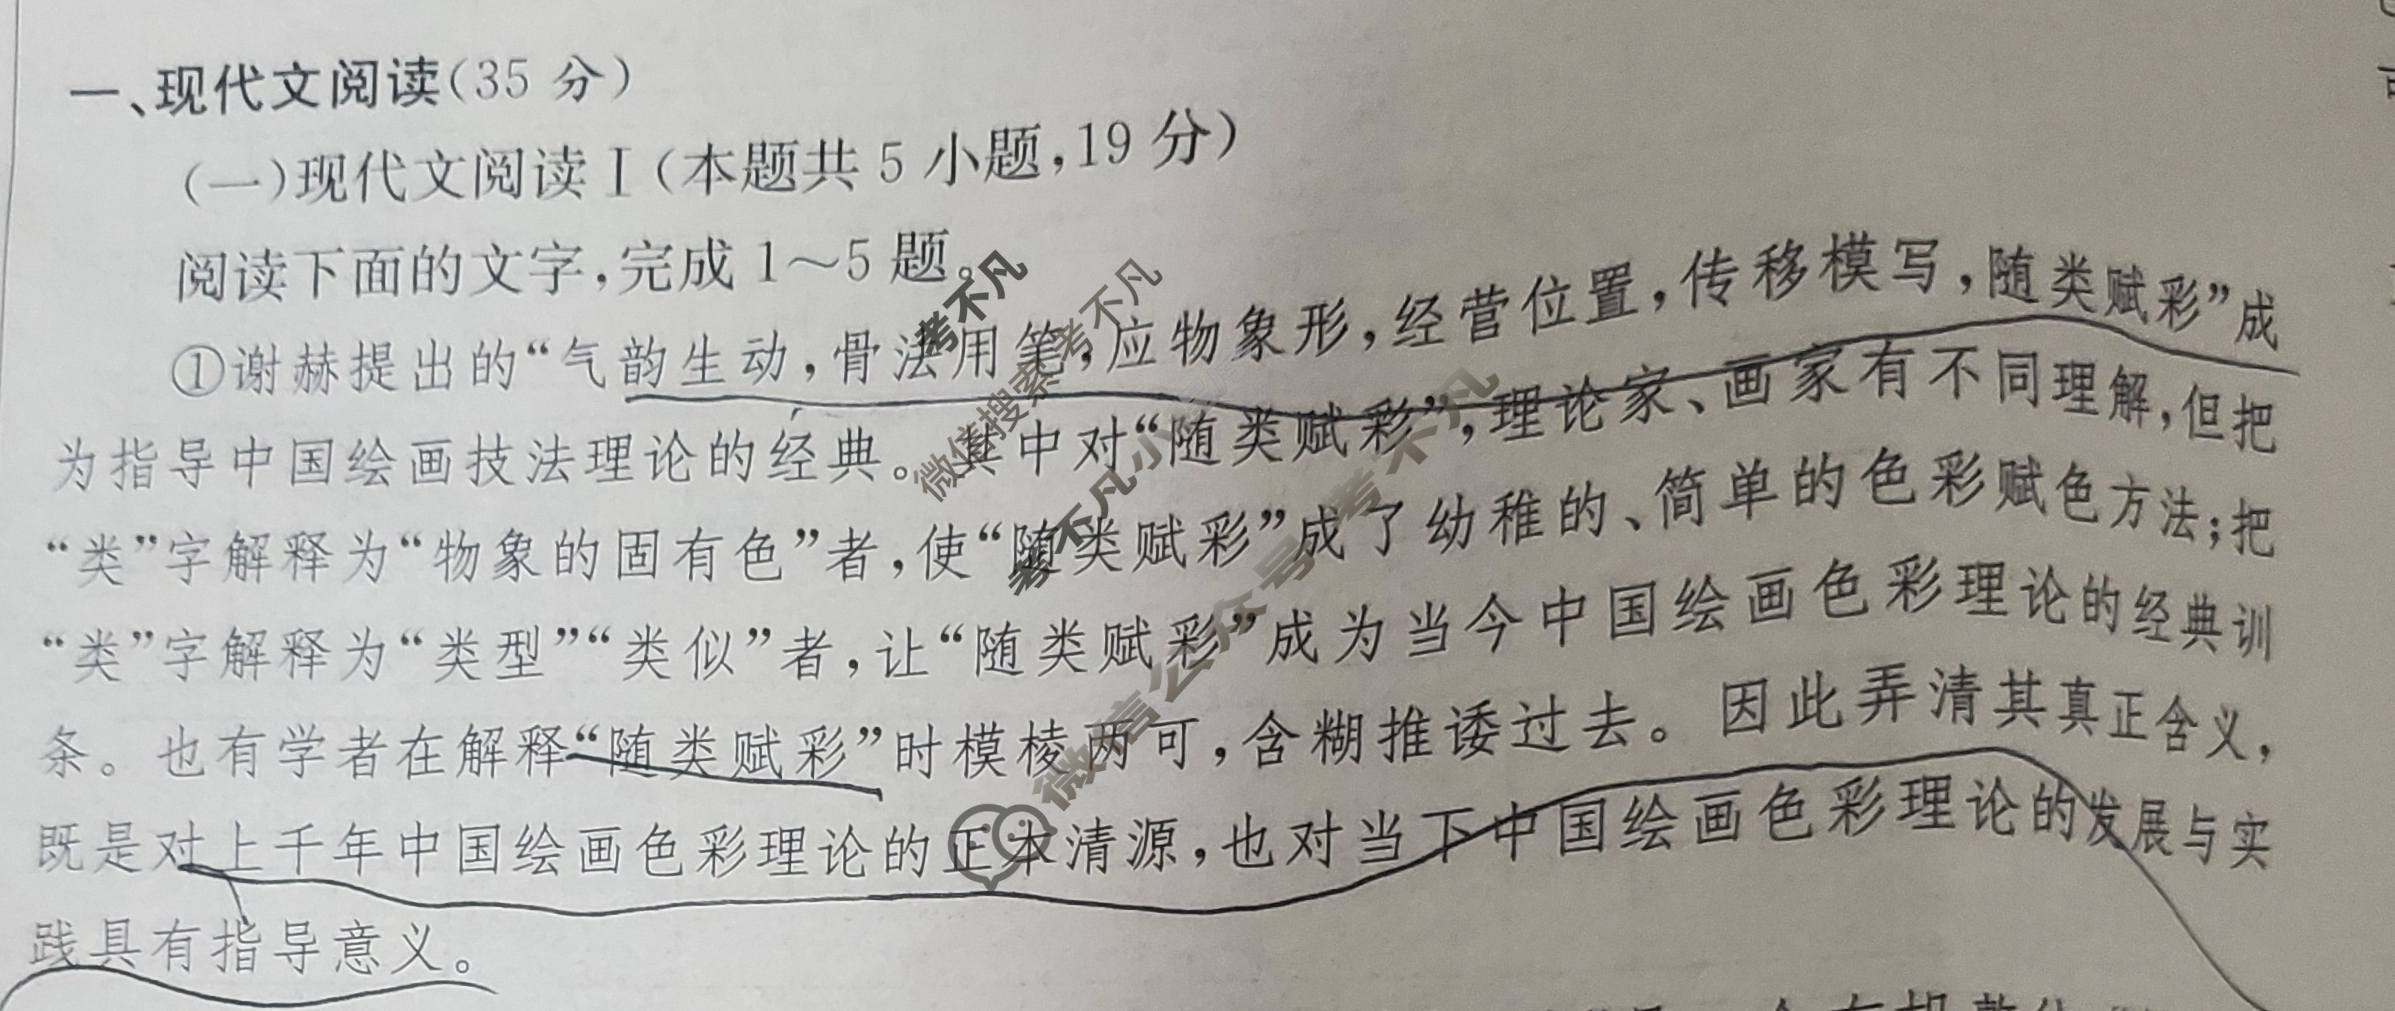 一、现代文阅读(35 分)
(一)现代文阅读Ⅰ(本题共 5 小题,19 分)
阅读下面的文字,完成 1～5 题。
①谢赫提出的“气韵生动,骨法用笔,应物象形,经营位置,传移模写,随类赋彩”成
为指导中国绘画技法理论的经典。其中对“随类赋彩”,理论家、画家有不同理解,但把
“类”字解释为“物象的固有色”者,使“随类赋彩”成了幼稚的、简单的色彩赋色方法;把
“类”字解释为“类型”“类似”者,让“随类赋彩”成为当今中国绘画色彩理论的经典训
条。也有学者在解释“随类赋彩”时模棱两可,含糊推诿过去。因此弄清其真正含义,
既是对上千年中国绘画色彩理论的正本清源,也对当下中国绘画色彩理论的发展与实
践具有指导意义。
考不凡
考不凡
微信搜索
考不凡小
微信公众号 考不凡